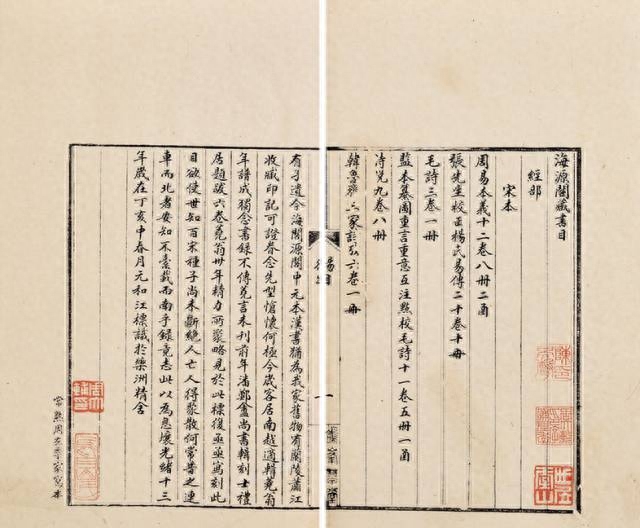 海源閣藏書目
經部
宋本
周易本義十二卷八册二函
張先生校正楊氏易傳二十卷十册
毛詩三卷一册
監本纂圖重言重意互注點校毛詩十一卷五册一函
詩說九卷八册
韓魯齊三家詩六卷一册
楊目
一
有子遺今海閣源閣中元本漢書猶為我家舊物有蘭陵蕭江
收藏印記可證眷念先型愴懷何極今歲客居南越適輯蕘翁
年譜成獨念書錄不傳蕘言未刊前年潘鄭盦尚書輯刻士禮
居題跋六卷蕘翁卅年精力所聚略見於此標復亟亟寫刻此
目欲使世知百宋種子尚未斷絕人亡人得聚散何常昔之連
車而北者安知不壹載而南乎錄竟志此以為息壤光緒十三
年歲在丁亥中春月元和江標識於欒洲精舍
常熟周左季家寫本